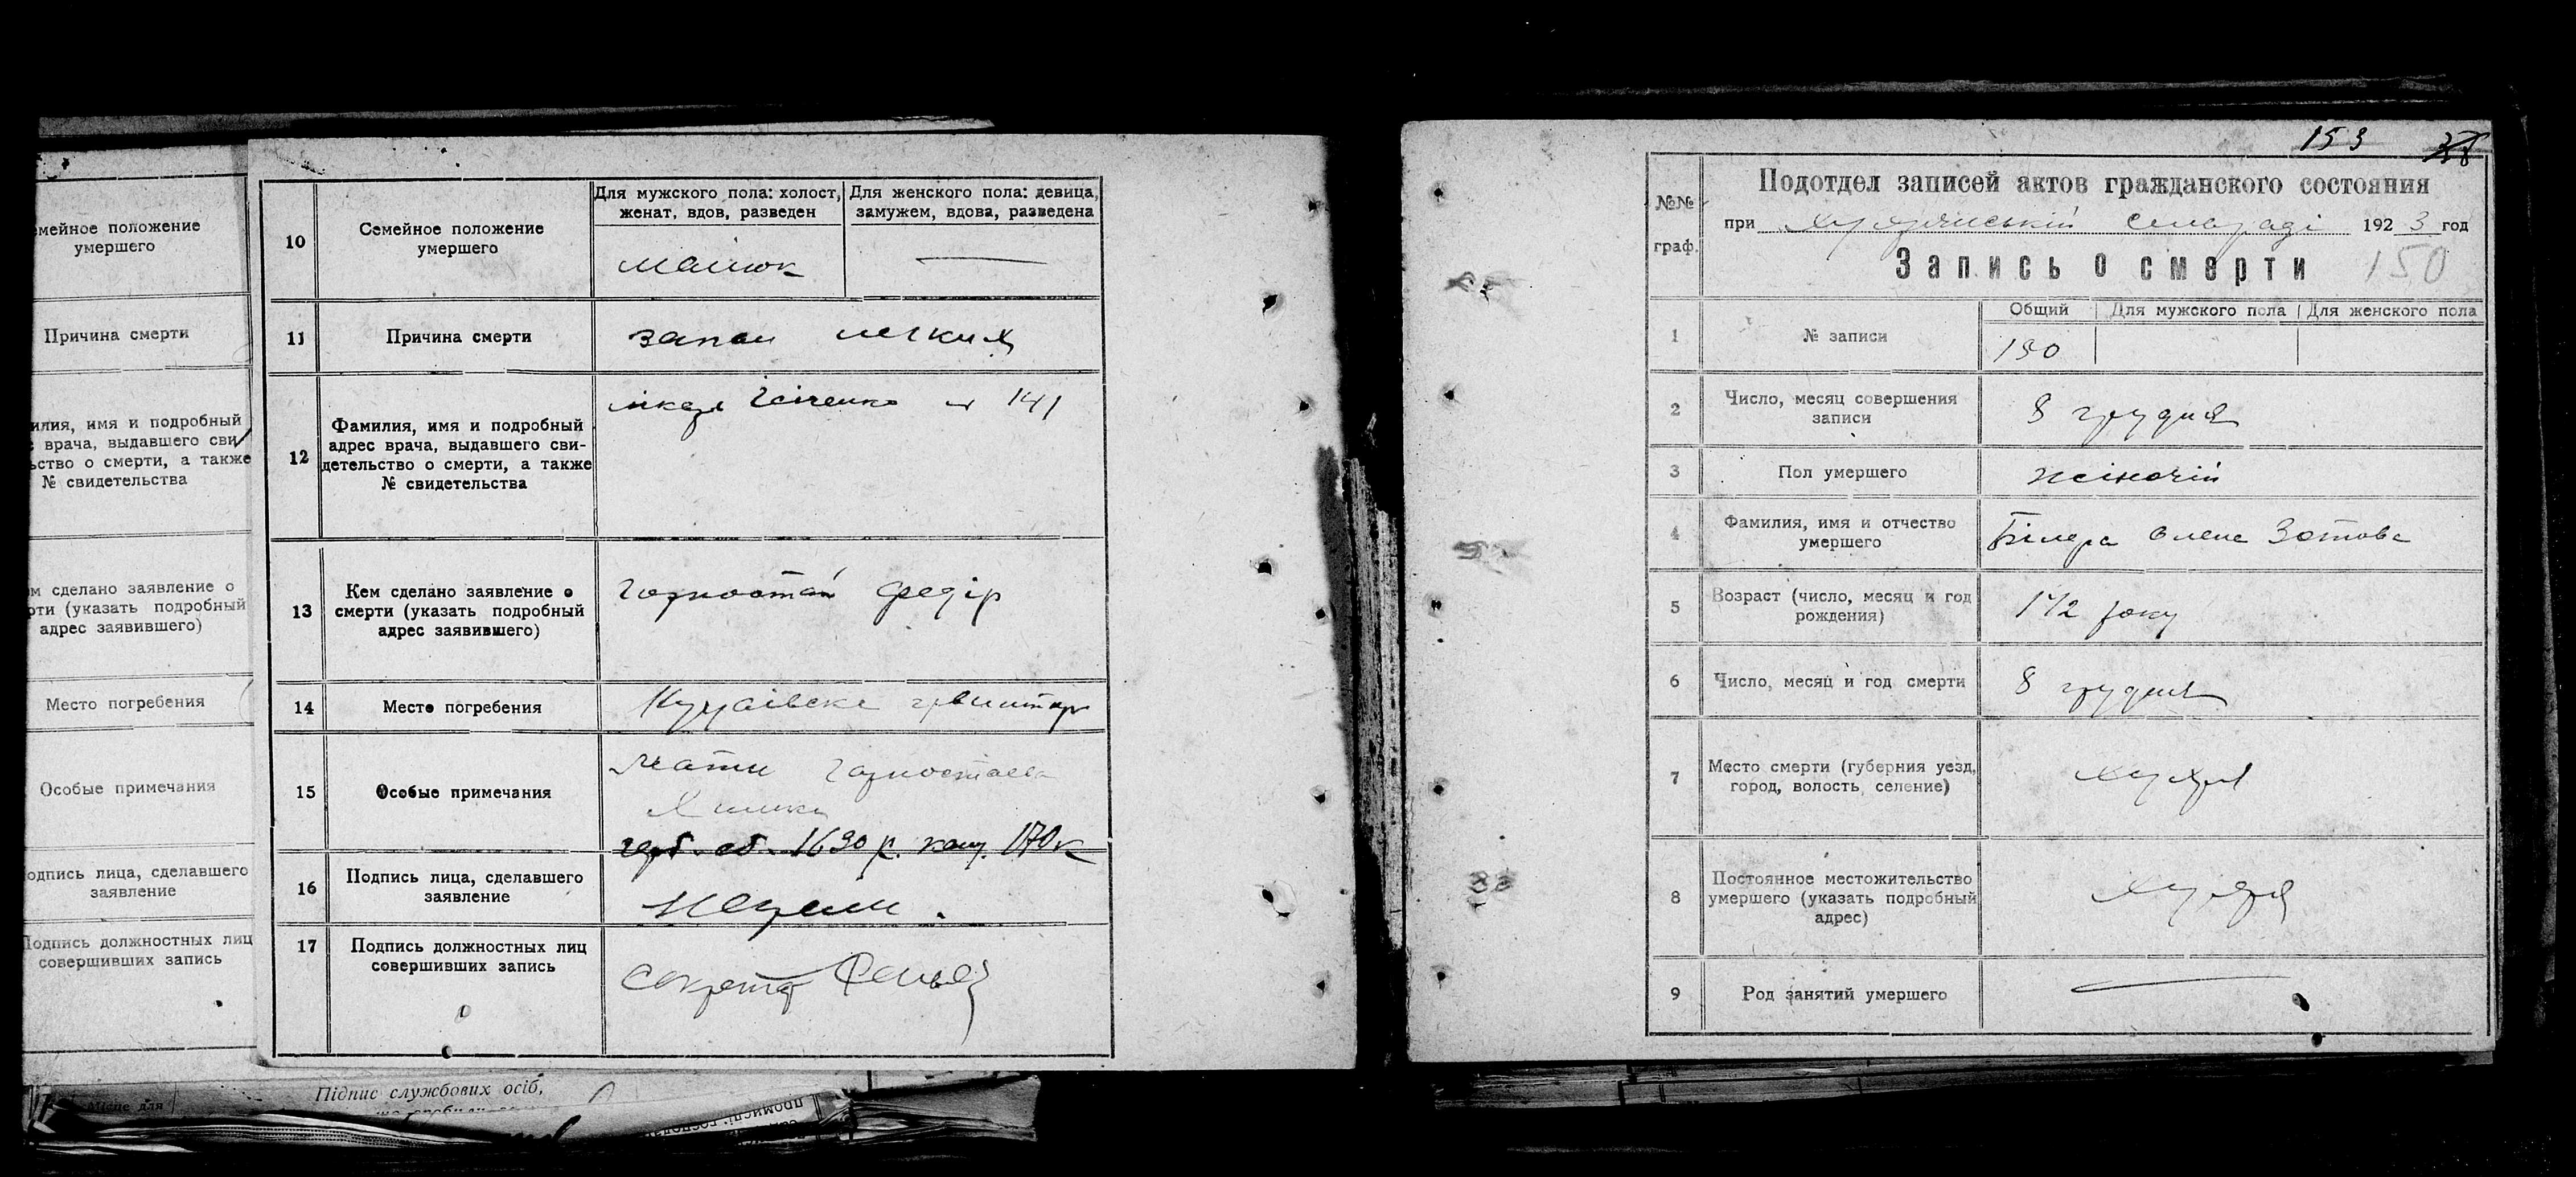 емейное положение
умершего
Причина смерти
илия, имя и подробный
с врача, выдавшего сви
ьство о смерти, а также
№ свидетельства
м сделано заявление о
рти (указать подробный
адрес заявившего)
Место погребения
Особые примечания
одпись лица, сделавшего
заявление
Подпись должностных лиц
совершивших запись
Підпис службових осіб,
Місце для
10
Семейное положение
умершего
Для мужского пола: холост,
женат, вдов, разведен
Для женского пола: девица,
замужем, вдова, разведена
11
Причина смерти
запал легких
12
Фамилия, имя и подробный
адрес врача, выдавшего сви-
детельство о смерти, а также
№ свидетельства
141
13
Кем сделано заявление о
смерти (указать подробный
адрес заявившего)
Горностай Федір
14
Место погребения
15
Особые примечания
Мати Горностаева
герб. сб. 1630 р. канц. 170 к
16
Подпись лица, сделавшего
заявление
17
Подпись должностных лиц
совершивших запись
Секретар
153
№№
граф.
Подотдел записей актов гражданского состояния
при Хухрянській сельраді 1923 год
Запись о смерти 150
1
№ записи
Общий
Для мужского пола
Для женского пола
150
2
Число, месяц совершения
записи
8 грудня
3
Пол умершего
жіночій
4
Фамилия, имя и отчество
умершего
Олена Зотова
5
Возраст (число, месяц и год
рождения)
1 1/2 року
6
Число, месяц и год смерти
8 грудня
7
Место смерти (губерния уезд,
город, волость, селение)
Хухря
8
Постоянное местожительство
умершего (указать подробный
адрес)
Хухря
9
Род занятий умершего